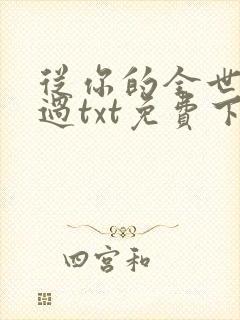 從你的全世
過txt免費下
四宮和